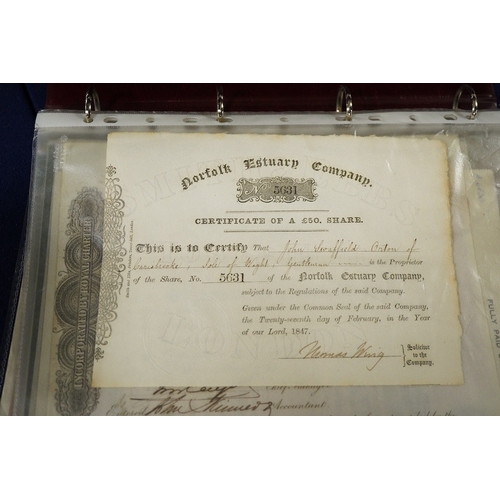 Norfolk Estuary Company.
No 5631
CERTIFICATE OF A £50. SHARE.
This is to Certify That John
Isle of Wight, Gentleman is the Proprietor
of the Share, No. 5631 of the Norfolk Estuary Company,
subject to the Regulations of the said Company.
Given under the Common Seal of the said Company,
the Twenty-seventh day of February, in the Year
of our Lord, 1847.
Thomas Wing
Solicitor
to the
Company.
INCORPORATED BY ROYAL CHARTER
Accountant
FULLY PAID